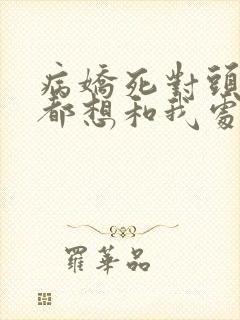 病嬌死對頭
都想和我處
羅華品